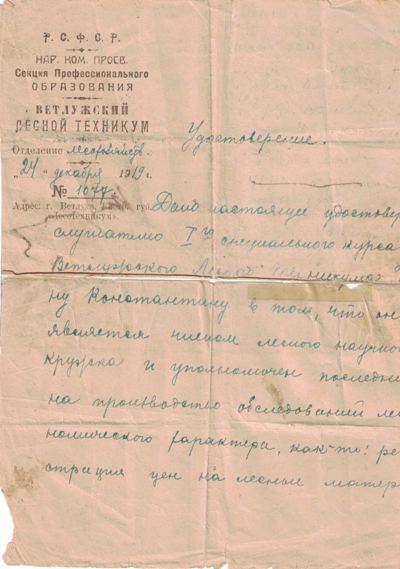 Р. С. Ф. С. Р.
НАР. КОМ. ПРОСВ.
Секция Профессионального
ОБРАЗОВАНИЯ
ВЕТЛУЖСКИЙ
ЛЕСНОЙ ТЕХНИКУМ
Отделение
"24" декабря 1919 г.
№ 1077
Адрес: г. Ветлуга, губ.
"Лесотехникум".
Удостоверение.
Дано настоящее удостовер
слушателю I го специального курса
Ветлужского Лесного Техникума
ну Константину в том, что он
является членом лесного научно
кружка и уполномочен последн
на производство обследований ле
номического характера, как-то: ре
страция цен на лесные матер